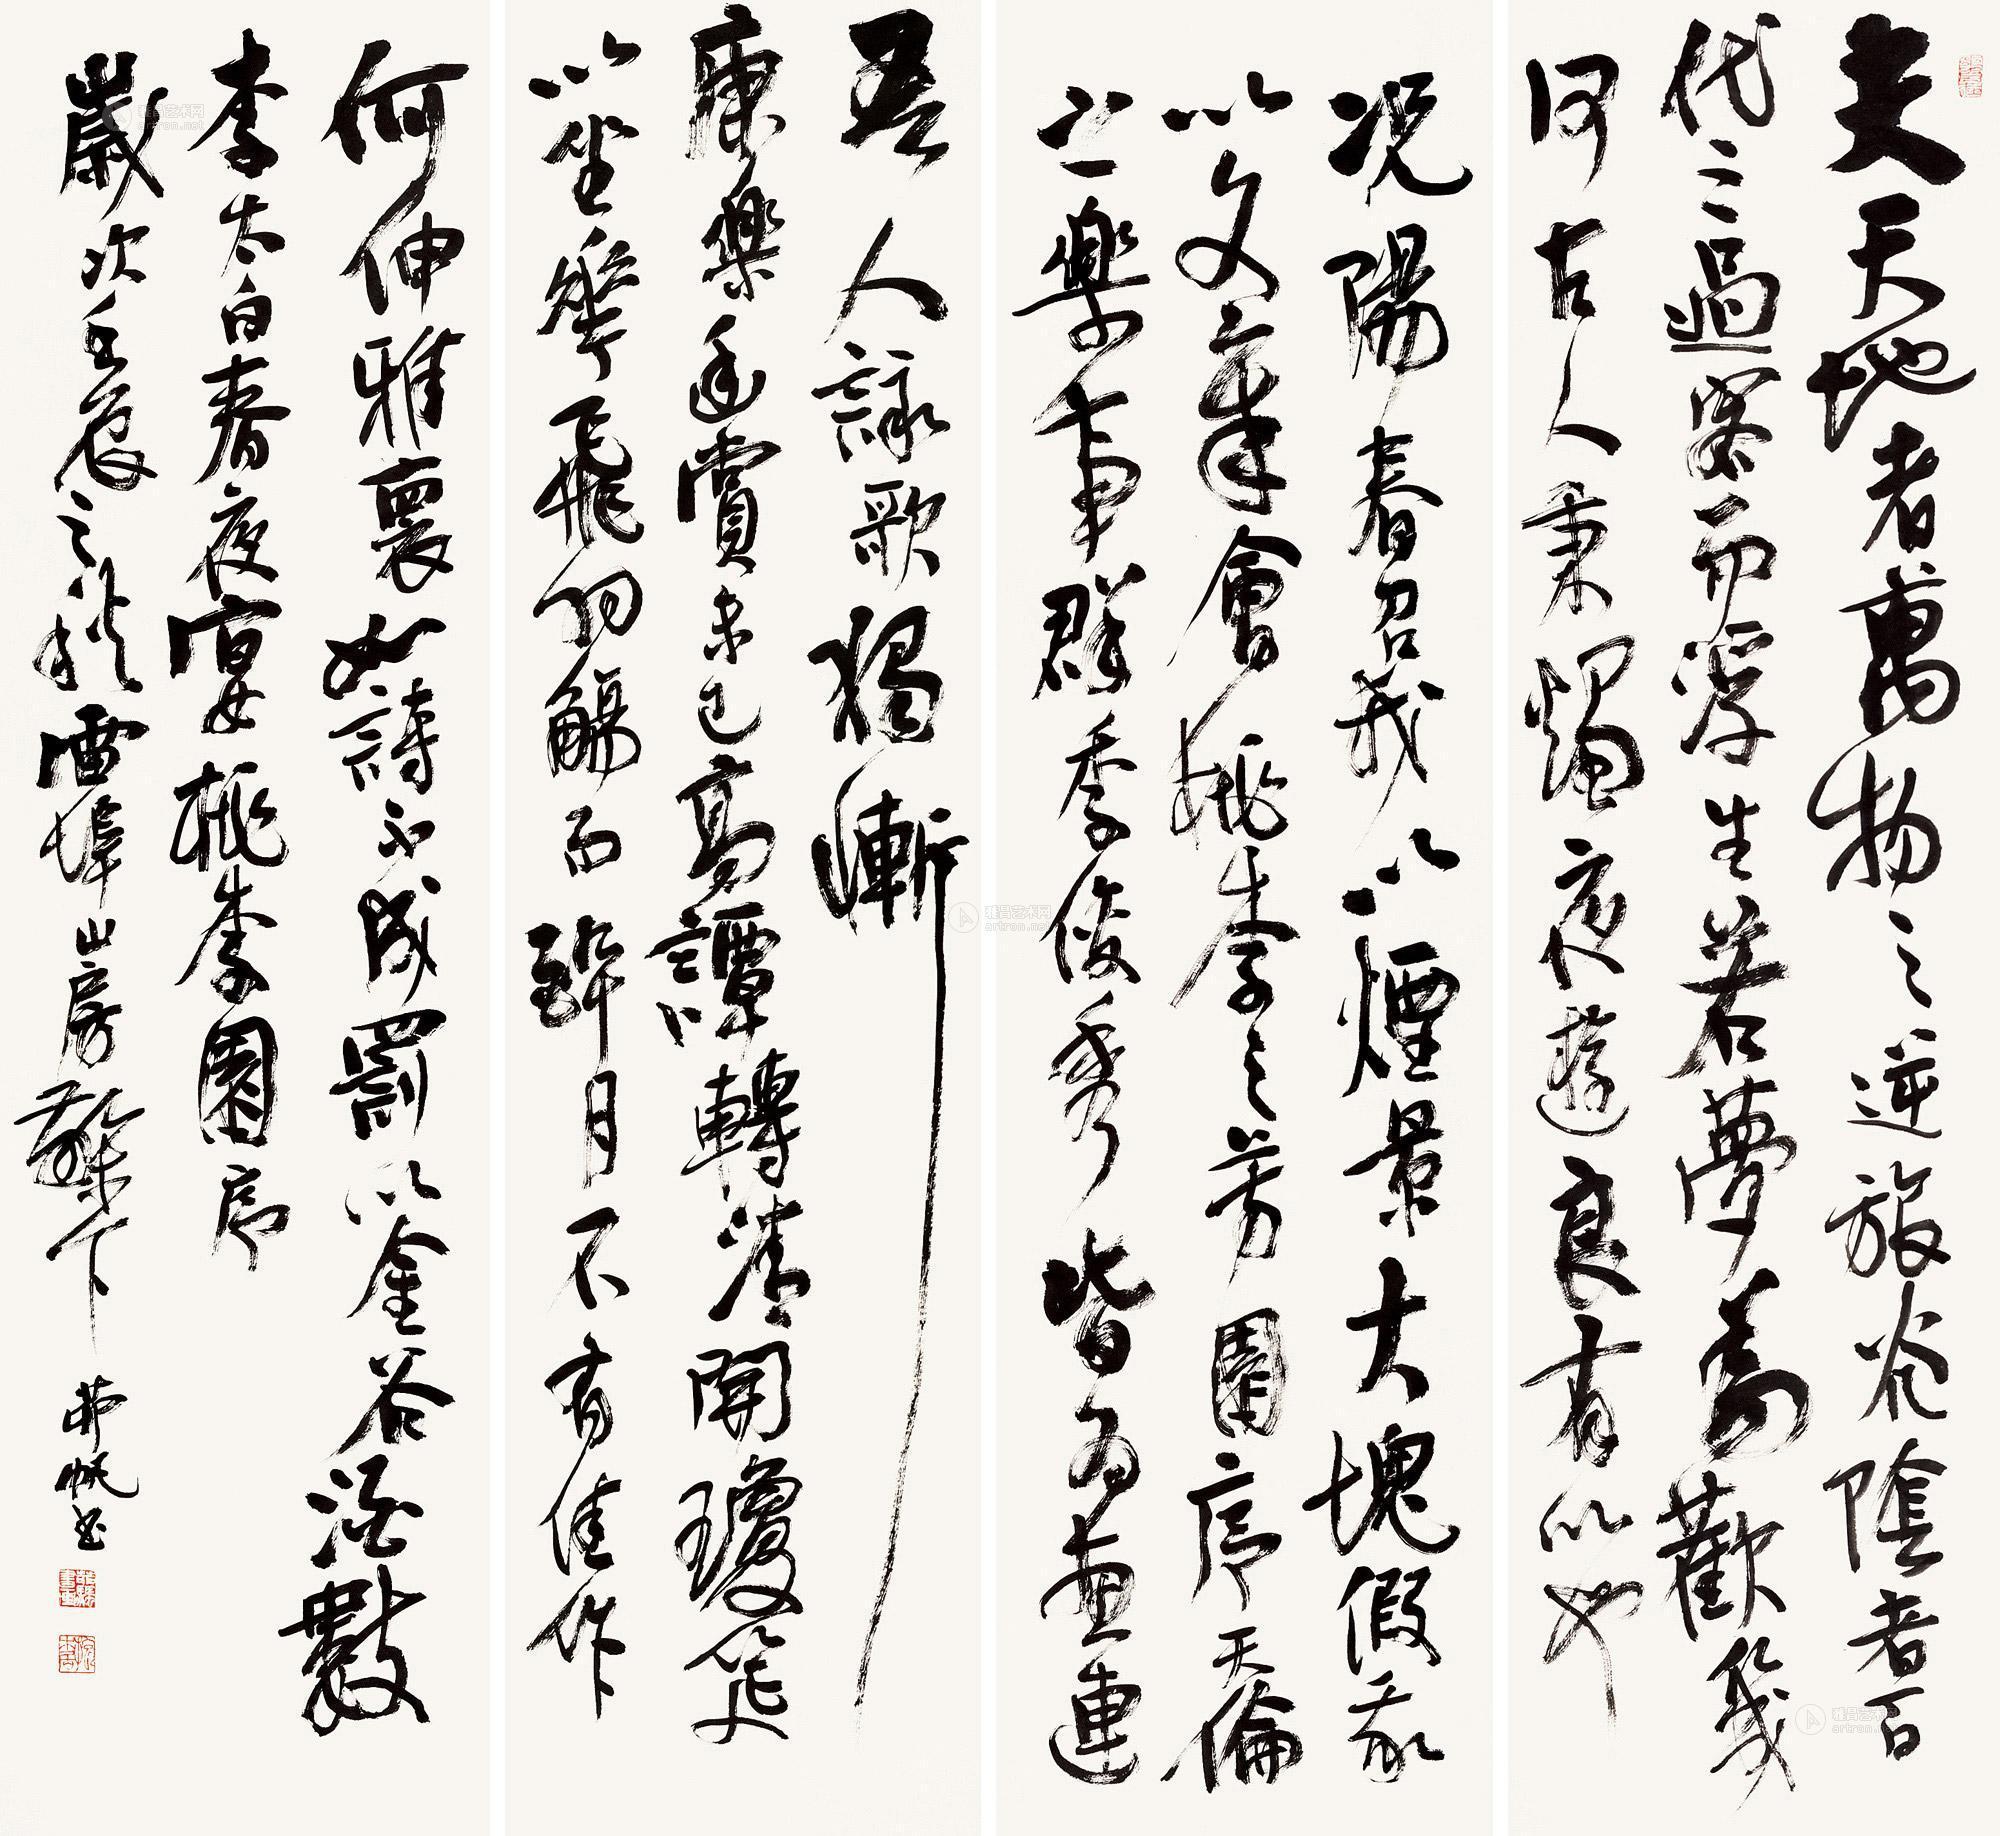 夫天地者萬物之逆旅光陰者百
代之過客而浮生若夢為歡幾
何古人秉燭夜遊良有以也
況陽春召我以煙景大塊假我
以文章會桃李之芳園序天倫
之樂事群季俊秀皆為惠連
吾人詠歌獨慚
康樂幽賞未已高譚轉清開瓊筵
以坐華飛羽觴而醉月不有佳作
何伸雅襃如詩不成罰以金谷酒數
李太白春夜宴桃李園序
歲次壬辰之秋 山房 下
雅昌艺术网
artron.net